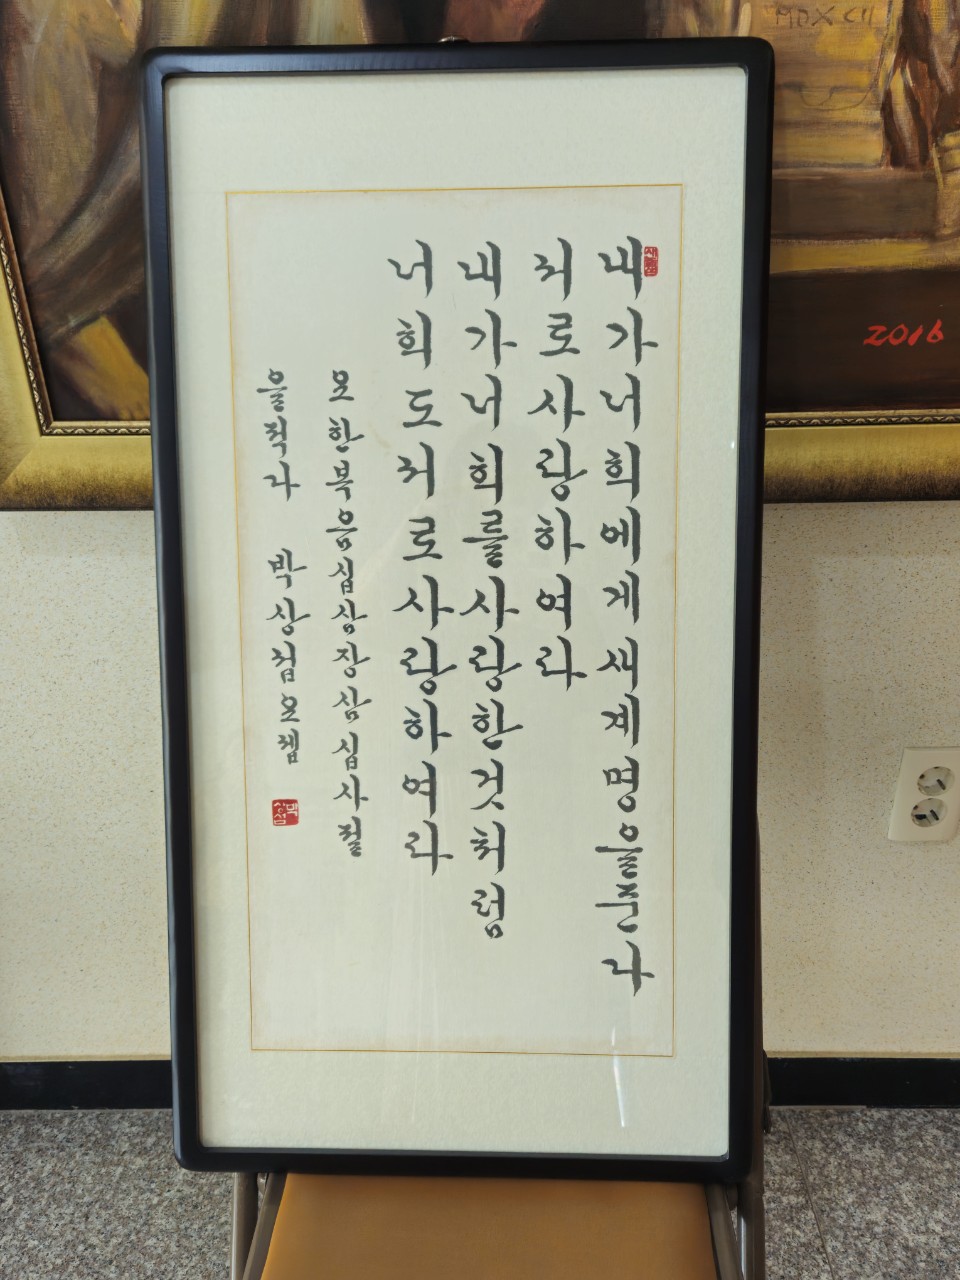 내가너희에게새계명을준다
서로사랑하여라
내가너희를사랑한것처럼
너희도서로사랑하여라
요한복음십삼장삼십사절
을적다 박상섬요셉
박상섬
MDXCII
2016